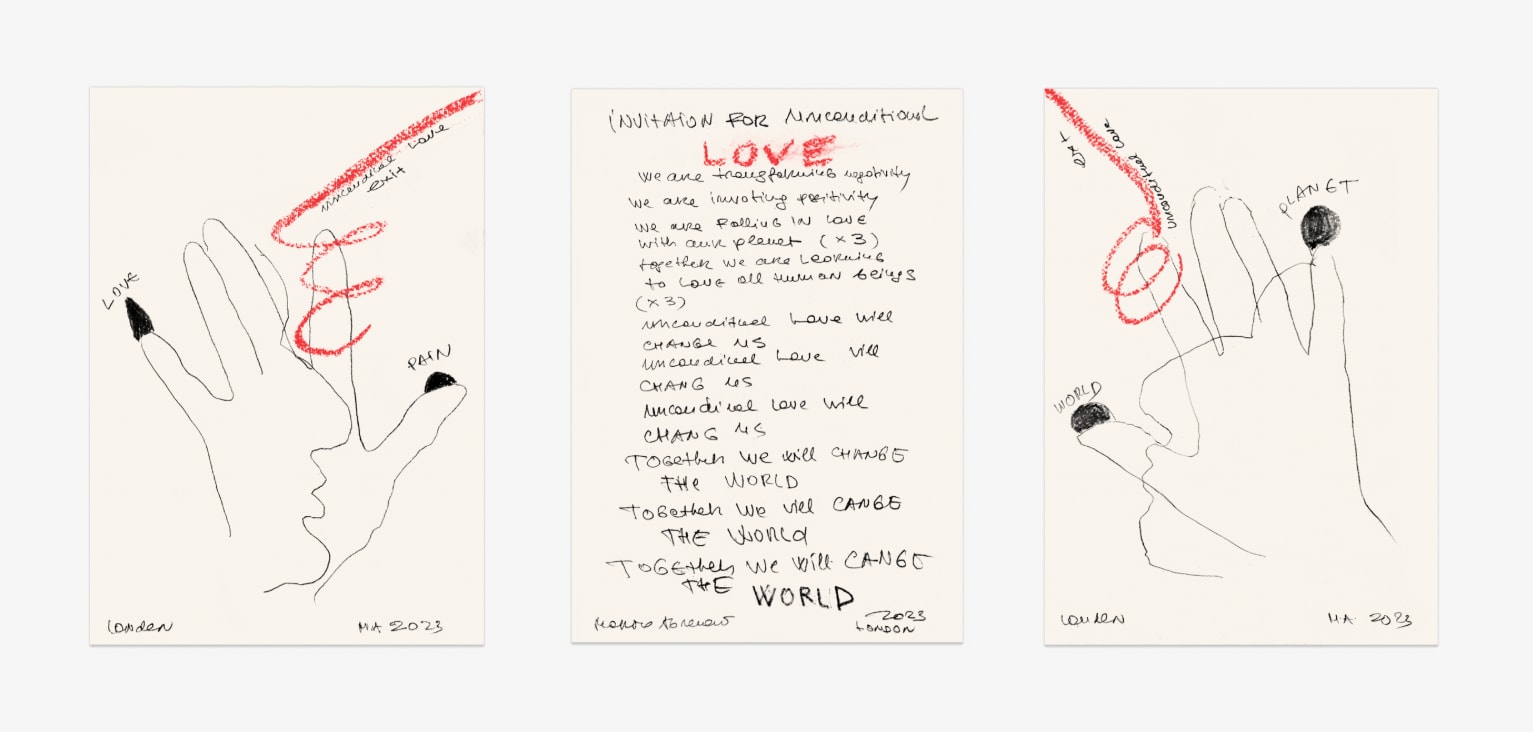 LOVE
unconditional Love
exit
PAIN
London
MA 2023
INVITAION FOR Unconditional
LOVE
We are transforming negativity
We are invoting positivity
We are Falling IN LOVE
With our planet (×3)
together We are Learning
to Love all Human beings
(×3)
Love will
CHANGE US
Love will
CHANG US
Love Will
CHANG US
TOGether We Will CHANGE
THe WORLD
TOGether We Will CANGE
THE World
TOGether We Will CANGE
THE WORLD
2023
LONDON
exit
Love
PLANET
WORLD
London
M.A. 2023